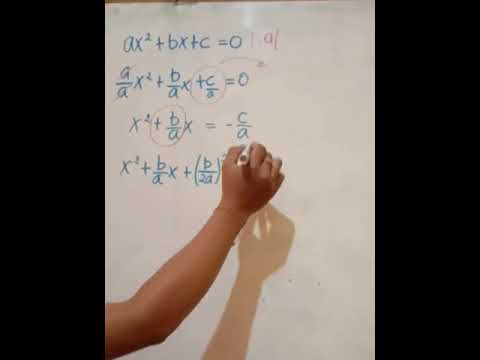 ax² + bx + c = 0 | :a |
a/a x² + b/a x + c/a = 0
x² + b/a x = - c/a
x² + b/a x + (b/2a)²